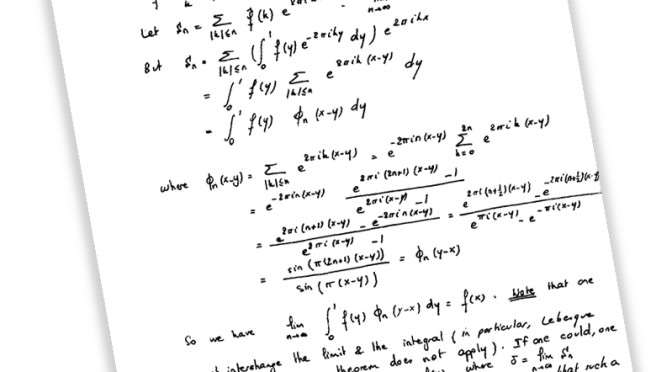 Let S_n = Σ_{|k|≤n} f̂(k) e
But S_n = Σ_{|k|≤n} (∫_0^1 f(y) e^{-2πiky} dy) e^{2πikx}
= ∫_0^1 f(y) Σ_{|k|≤n} e^{2πik(x-y)} dy
= ∫_0^1 f(y) ϕ_n(x-y) dy
where ϕ_n(x-y) = Σ_{|k|≤n} e^{2πik(x-y)} = e^{-2πin(x-y)} Σ_{k=0}^{2n} e^{2πik(x-y)}
= e^{-2πin(x-y)} (e^{2πi(2n+1)(x-y)} - 1)/(e^{2πi(x-y)} - 1)
= (e^{2πi(n+1)(x-y)} - e^{-2πin(x-y)})/(e^{2πi(x-y)} - 1) = (e^{2πi(n+½)(x-y)} - e^{-2πi(n+½)(x-y)})/(e^{πi(x-y)} - e^{-πi(x-y)})
= sin(π(2n+1)(x-y))/sin(π(x-y)) = ϕ_n(y-x)
So we have lim_{n→∞} ∫_0^1 f(y) ϕ_n(y-x) dy = f(x). Note that one
interchange the limit & the integral (in particular, Lebesgue
theorem does not apply). If one could, one
where δ = lim_{n→∞} S_n
that such a